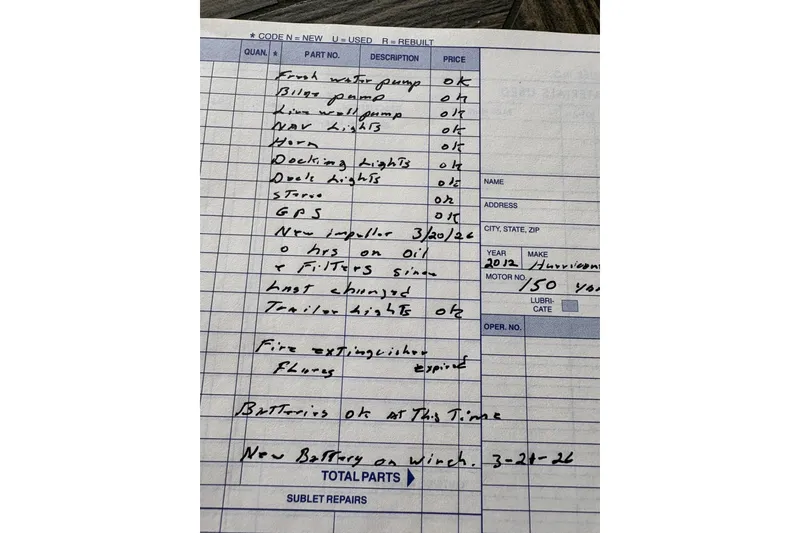 * CODE N = NEW U = USED R = REBUILT
QUAN. * PART NO. DESCRIPTION PRICE
Fresh water pump ok
Bilge pump ok
Live well pump ok
NAV Lights ok
Horn ok
Docking Lights ok
Dock Lights ok
Stereo ok
GPS ok
New impeller 3/20/26
0 hrs on oil
+ Filters since
Last changed
Trailer Lights ok
Fire extinguisher
FLares expired
Batteries ok AT This Time
New Battery on winch. 3-21-26
TOTAL PARTS
SUBLET REPAIRS
NAME
ADDRESS
CITY, STATE, ZIP
YEAR MAKE
2012 Hurricane
MOTOR NO.
150
LUBRI-
CATE
OPER. NO.